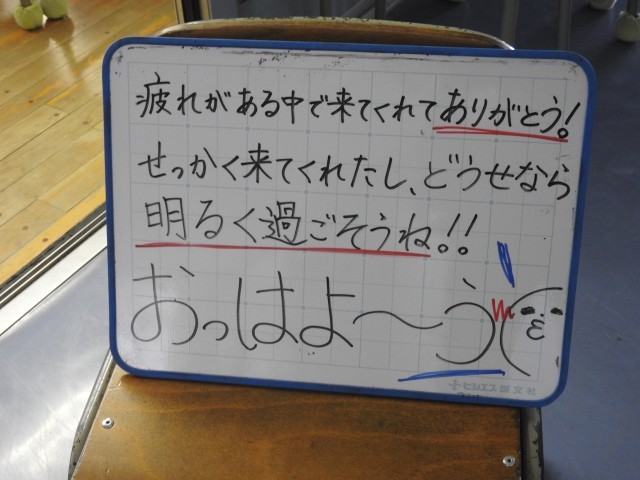 疲れがある中で来てくれてありがとう!
せっかく来てくれたし、どうせなら
明るく過ごそうね!!
おっはよ〜う